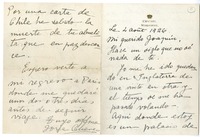 Por una carta de
Chile he sabido la
muerte de tu abuela
que en paz descan-
ce.
Espero verte a
mi regreso a Paris
donde me quedaré
uno dos o tres dias
antes de seguir
viaje.
Le 2 Août 1924
Mi querido Joaquin,
Hace un siglo que no sé
nada de ti.
Yo me he ido quedan-
do en Inglaterra de
una en otra y
el tiempo se va pa-
sando volando.
Aqui donde estoy
es un palacio de